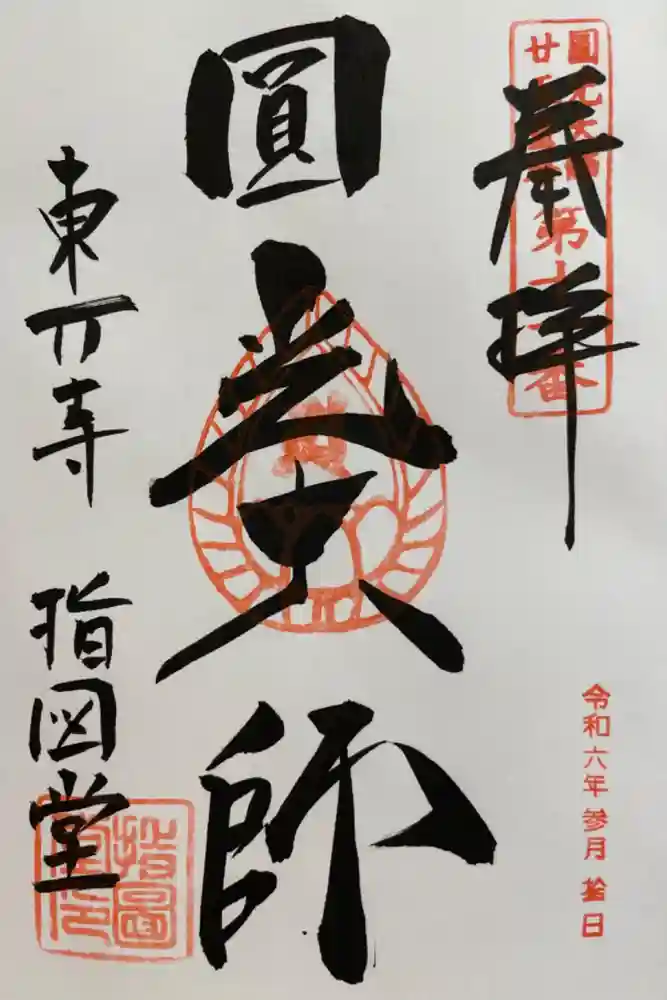 奉拝
圓光大師
廿五霊場
第十一番
圓光大師
東大寺
指図堂
指圖堂印
令和六年参月拾日